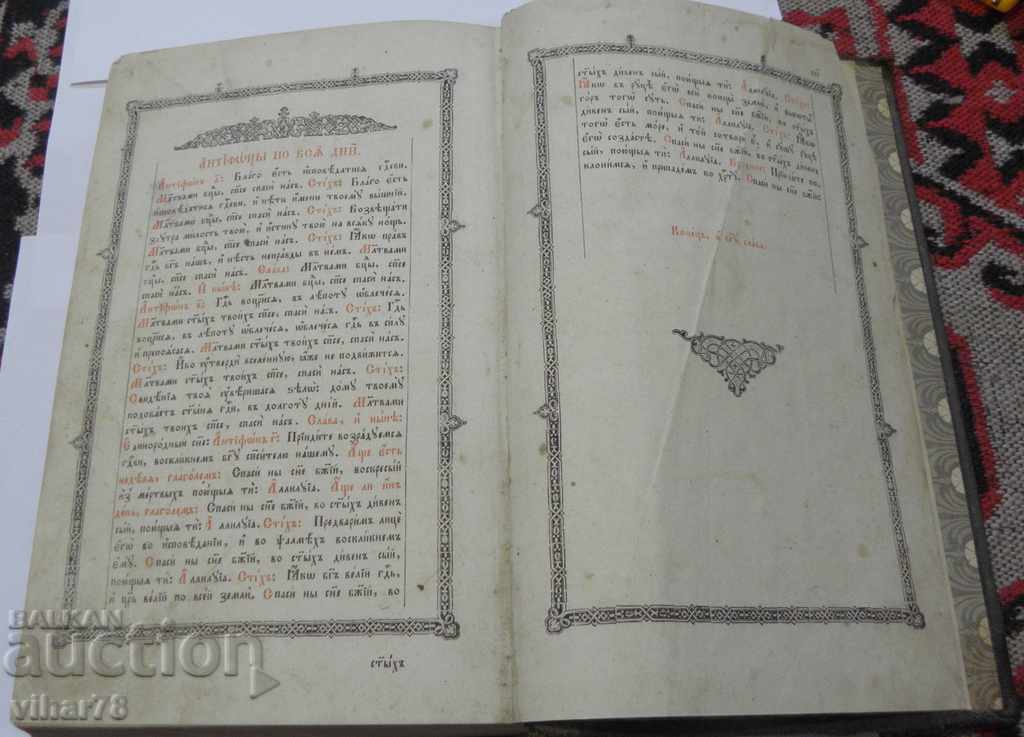 АНТІФѠНЫ ПО ВСѦ ДНИ.
Антіфѡнъ а҃: Благо єсть исповѣдатися гдⷭ҇еви.
Мл҃твами бцⷣы, сп҃се спаси насъ. Стіхъ: Благо єсть
исповѣдатися гдⷭ҇еви, и пѣти имени твоему вышній.
Мл҃твами бцⷣы, сп҃се спаси насъ. Стіхъ: Возвѣщати
заутра милость твою, и истину твою на всяку нощь.
Мл҃твами бцⷣы, сп҃се спаси насъ. Стіхъ: Ꙗкѡ правъ
гдⷭ҇ь бг҃ъ нашъ, и нѣсть неправды въ немъ. Мл҃твами
бцⷣы, сп҃се спаси насъ. Слава: Мл҃твами бцⷣы, сп҃се
спаси насъ. И нынѣ: Мл҃твами бцⷣы, сп҃се спаси насъ.
Антіфѡнъ в҃: Гдⷭ҇ь воцр҃ися, въ лѣпоту ѡблечеся.
Мл҃твами ст҃ыхъ твоихъ сп҃се, спаси насъ. Стіхъ: Гдⷭ҇ь
воцр҃ися, въ лѣпоту ѡблечеся, ѡблечеся гдⷭ҇ь въ силу
и препоясася. Мл҃твами ст҃ыхъ твоихъ сп҃се, спаси насъ.
Стіхъ: Ибо утверди вселенную, ꙗже не подвижится.
Мл҃твами ст҃ыхъ твоихъ сп҃се, спаси насъ. Стіхъ:
Свидѣнія твоя увѣришася ѕѣлѡ: дому твоему
подобаетъ ст҃ыня гдⷭ҇и, въ долготу дній. Мл҃твами
ст҃ыхъ твоихъ сп҃се, спаси насъ. Слава, и нынѣ:
Единородный сн҃е: Антіфѡнъ г҃: Пріидите возрадуемся
гдⷭ҇еви, воскликнемъ бг҃у сп҃сителю нашему. Аще єсть
недѣля, глаголемъ: Спаси ны сн҃е бж҃ій, воскресый
из̾ мертвыхъ поющыя ти: Аллилуіа. Аще ли инъ
день, глаголемъ: Спаси ны сн҃е бж҃ій, во ст҃ыхъ дивенъ
сый, поющыя ти: Аллилуіа. Стіхъ: Предваримъ лице
єгѡ во исповѣданіи, и во ѱалмѣхъ воскликнемъ
єму. Спаси ны сн҃е бж҃ій, во ст҃ыхъ дивенъ сый,
поющыя ти: Аллилуіа. Стіхъ: Ꙗкѡ бг҃ъ велій гдⷭ҇ь,
и цр҃ь велій по всей земли. Спаси ны сн҃е бж҃ій, во
ст҃ыхъ
ст҃ыхъ дивенъ сый, поющыя ти: Аллилуіа. Стіхъ:
Ꙗкѡ въ руцѣ єгѡ вси концы земли, и высоты
горъ тогѡ суть. Спаси ны сн҃е бж҃ій, во ст҃ыхъ
дивенъ сый, поющыя ти: Аллилуіа. Стіхъ: Ꙗкѡ
тогѡ єсть море, и той сотвори є, и сушу руцѣ
єгѡ создастѣ. Спаси ны сн҃е бж҃ій, во ст҃ыхъ дивенъ
сый, поющыя ти: Аллилуіа. Входное: Пріидите по-
клонимся, и припадемъ ко хрⷭ҇ту. Спаси ны сн҃е бж҃ій
Конецъ, и бг҃у слава.
BALKAN
auction
vihar78